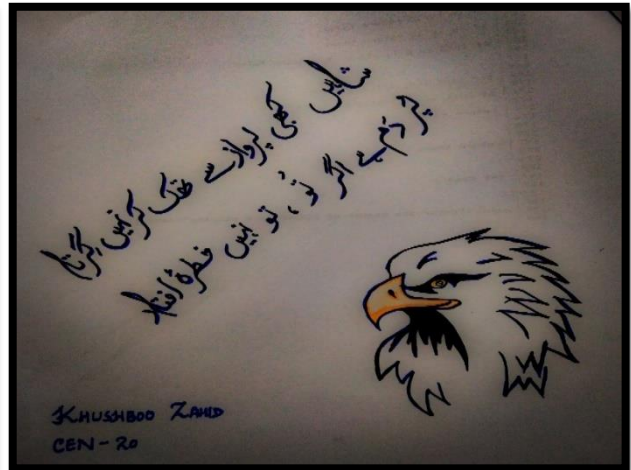 شاہیں کبھی پرواز سے تھک کر نہیں گرتا
پُر دَم ہے اگر تُو، تو نہیں خطرۂ افتاد
KHUSHBOO ZAHID
CEN-20